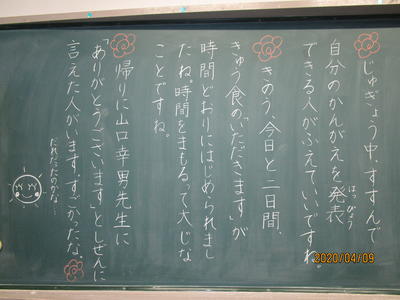 じゅぎょう中、すすんで
自分のかんがえを発表
はっぴょう
できる人がふえていいですね。
きのう、今日と二日間、
きゅう食の「いただきます」が
時間どおりにはじめられまし
たね。時間をまもるって大じな
ことですね。
帰りに山口幸男先生に
「ありがとうございます」としぜんに
言えた人がいます。すごかったな。
だれだったのかな…
2020/04/09